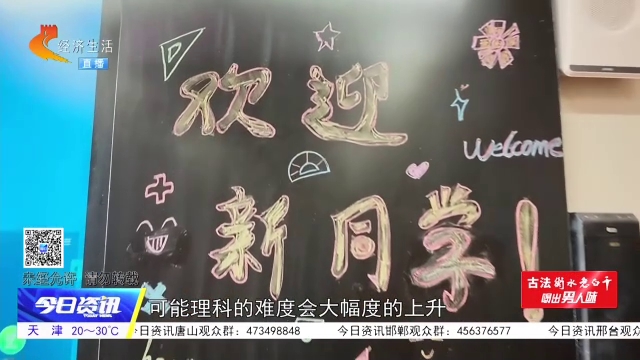 经济生活
直播
欢迎
Welcome
新同学!
未经允许 请勿转载
今日资讯
可能理科的难度会大幅度的上升
古法衡水老白干
喝出男人味
天 津 20~30℃ 今日资讯唐山观众群：473498848 今日资讯邯郸观众群：456376577 今日资讯邢台观众